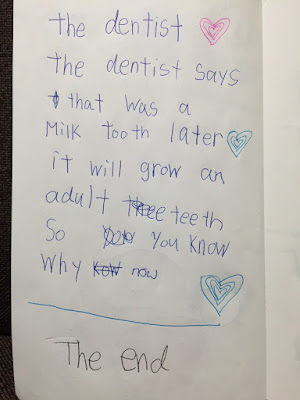 the dentist
the dentist says
that was a
Milk tooth later
it will grow an
adult teeth
So you know
why now
The end